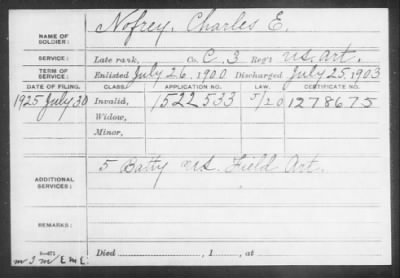 NAME OF SOLDIER: Nofrey, Charles E.
SERVICE: Late rank, Co. C. 3 Reg't U.S. Art.
TERM OF SERVICE: Enlisted July 26, 1900 Discharged July 25, 1903
DATE OF FILING. CLASS. APPLICATION NO. LAW. CERTIFICATE NO.
1925 July 30 Invalid, 1522533 5/20 1278675
Widow,
Minor,
ADDITIONAL SERVICES: 5 Batty U.S. Field Art.
REMARKS:
3—671
Died , 1 , at